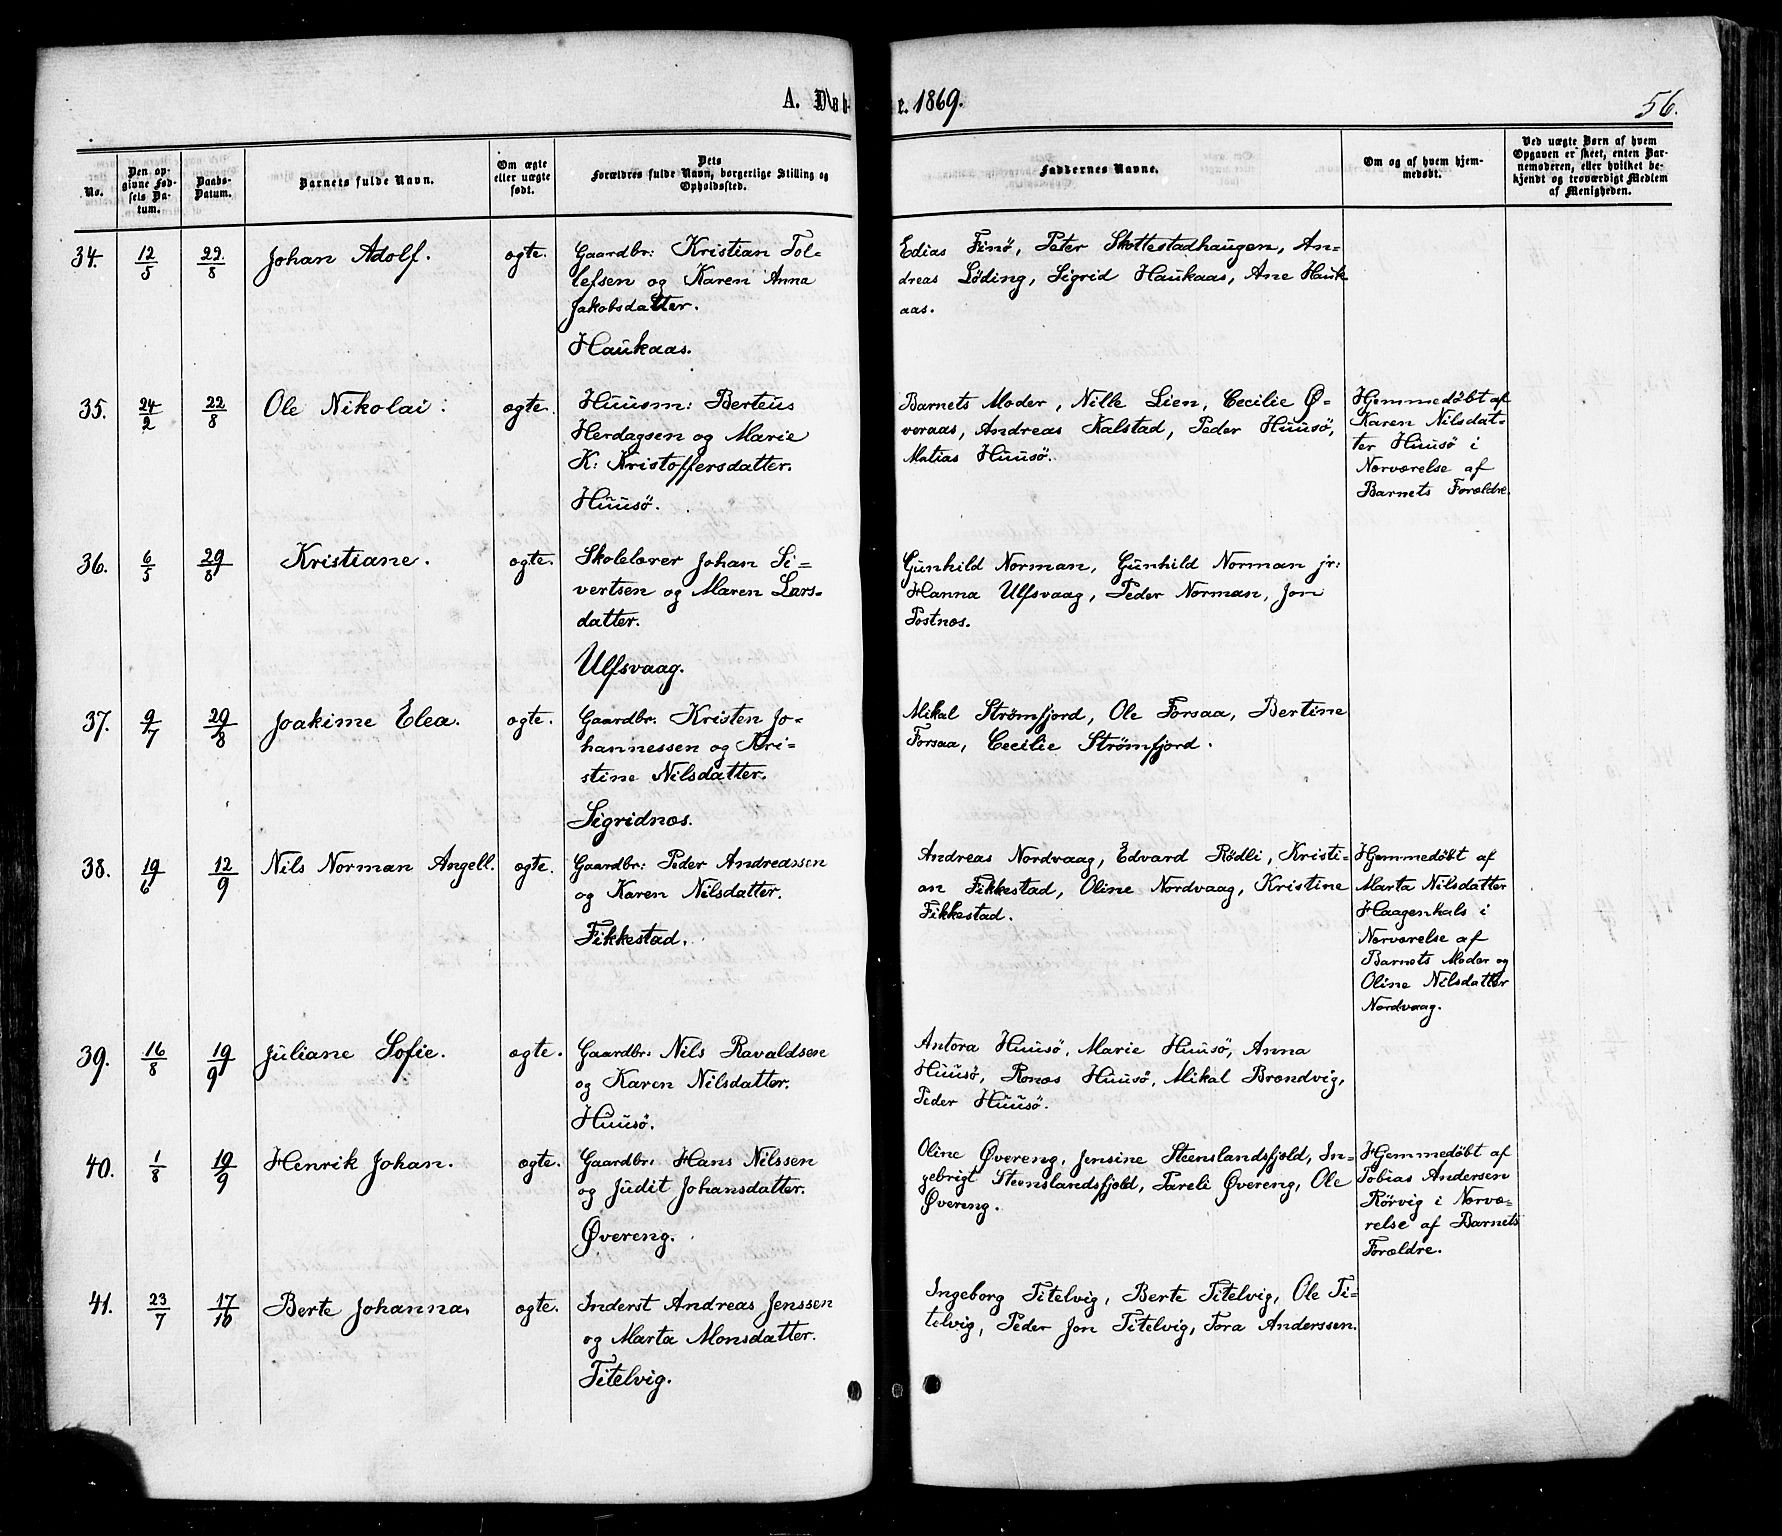 A. Døb-
e. 1869.
56.
No.
Den op-
givne Fød-
sels Da-
tum.
Daabs-
Datum.
Barnets fulde Navn.
Om ægte
eller uægte
født.
Dets
Forældres fulde Navn, borgerlige Stilling og
Opholdssted.
Faddernes Navne.
Om og af hvem hjem-
medøbt.
Ved uægte Børn af hvem
Opgaven er skeet, enten Bar-
nemoderen, eller hvilket be-
kjendt og troværdigt Medlem
af Menigheden.
34. 12/5 22/8 Johan Adolf. ægte. Gaardbr: Kristian Tol-
lefsen og Karen Anna
Jakobsdatter.
Haukaas.
Edias Finø, Peter Skottestadhaugen, An-
dreas Løding, Sigrid Haukaas, Ane Hauk
aas.
35. 24/2 22/8 Ole Nikolai. ægte. Huusm: Berteus
Herdagsen og Marie
K: Kristoffersdatter.
Huusö.
Barnets Moder, Nille Lien, Cecilie Ø-
veraas, Andreas Kalstad, Peder Huusö,
Matias Huusö.
Hjemmedøbt af
Karen Nilsdat-
ter Huusö i
Nærværelse af
Barnets Forældre.
36. 6/5 29/8 Kristiane. ægte. Skolelærer Johan Si-
vertsen og Maren Lars-
datter.
Ulfsvaag.
Gunhild Norman, Gunhild Norman jr:
Hanna Ulfsvaag, Peder Norman, Jon
Postnæs.
37. 9/7 29/8 Joakime Elea. ægte. Gaardbr. Kristen Jo-
hannessen og Kri-
stine Nilsdatter.
Sigridnæs.
Mikal Strømfjord, Ole Forsaa, Bertine
Forsaa, Cecilie Strømfjord.
38. 19/6 12/9 Nils Norman Angell. ægte. Gaardbr: Peder Andreassen
og Karen Nilsdatter.
Fikkestad.
Andreas Nordvaag, Edvard Rödli, Kristi-
an Fikkestad, Oline Nordvaag, Kristine
Fikkestad.
Hjemmedøbt af
Marta Nilsdatter
Haagenhals i
Nærværelse af
Barnets Moder og
Oline Nilsdatter
Nordvaag.
39. 16/8 19/9 Juliane Sofie. ægte. Gaardbr: Nils Ravaldsen
og Karen Nilsdatter.
Huusö.
Antora Huusö, Marie Huusö, Anna
Huusö, Ronæs Huusö, Mikal Brændvig,
Peder Huusö.
40. 1/8 19/9 Henrik Johan. ægte. Gaardbr: Hans Nilssen
og Judit Johansdatter.
Øvereng.
Oline Øvereng, Jensine Steenslandsfjeld, In-
gebrigt Steenslandsfjeld, Pareli Øvereng, Ole
Øvereng.
Hjemmedøbt af
Tobias Andersen
Rörvig i Nærvæ-
relse af Barnets
Forældre.
41. 23/7 17/10 Berte Johanna. ægte. Inderst Andreas Jenssen
og Marta Monsdatter.
Titelvig.
Ingeborg Titelvig, Berte Titelvig, Ole Ti-
telvig, Peder Jon Titelvig, Tora Anderssen.